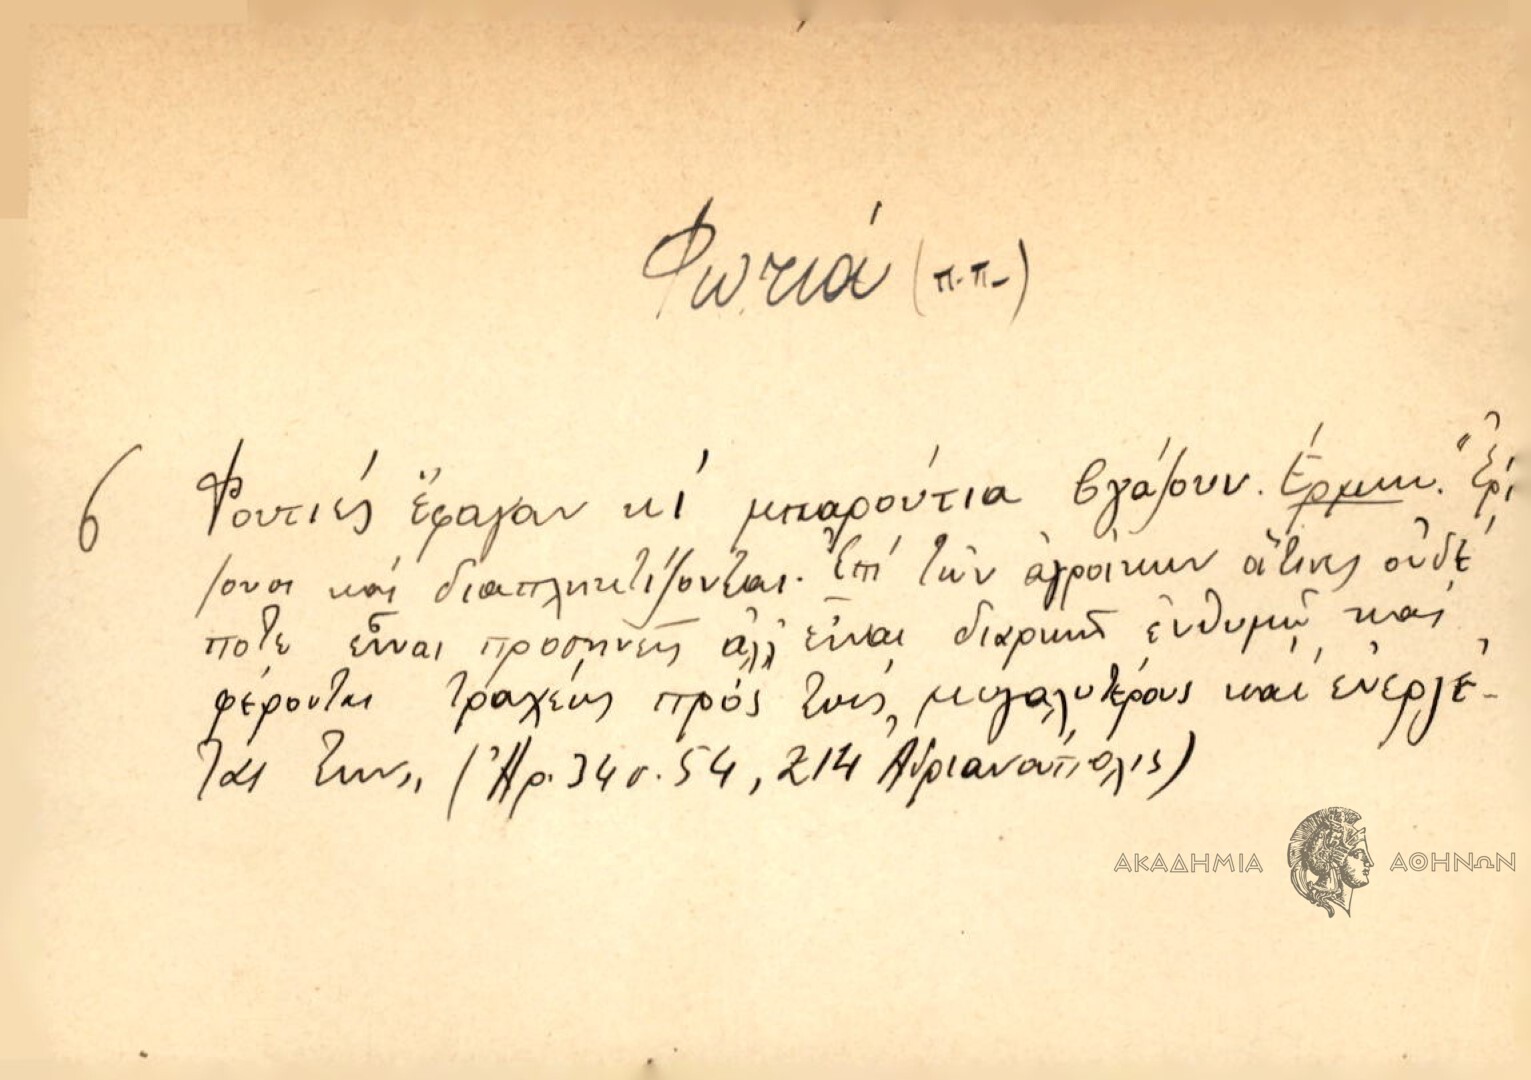 Φωτιά (π.π.)
6 Φουτιές ἔφαγαν κὶ μπαρούτια βγάζουν. Ἑρμην. "Ἐρί
ζουσι καὶ διαπληκτίζονται. Ἐπὶ τῶν ἀγροίκων οἵτινες οὐδέ
ποτε εἶναι προσηνεῖς ἀλλ' εἶναι διαρκῶς καὶ
φέρονται τραχέως πρὸς τοὺς μεγαλυτέρους καὶ εὐεργέ-
τας των" (Ἀρ. 34 σ. 54, 214 Ἀδριανούπολις)
ΑΚΑΔΗΜΙΑ ΑΘΗΝΩΝ